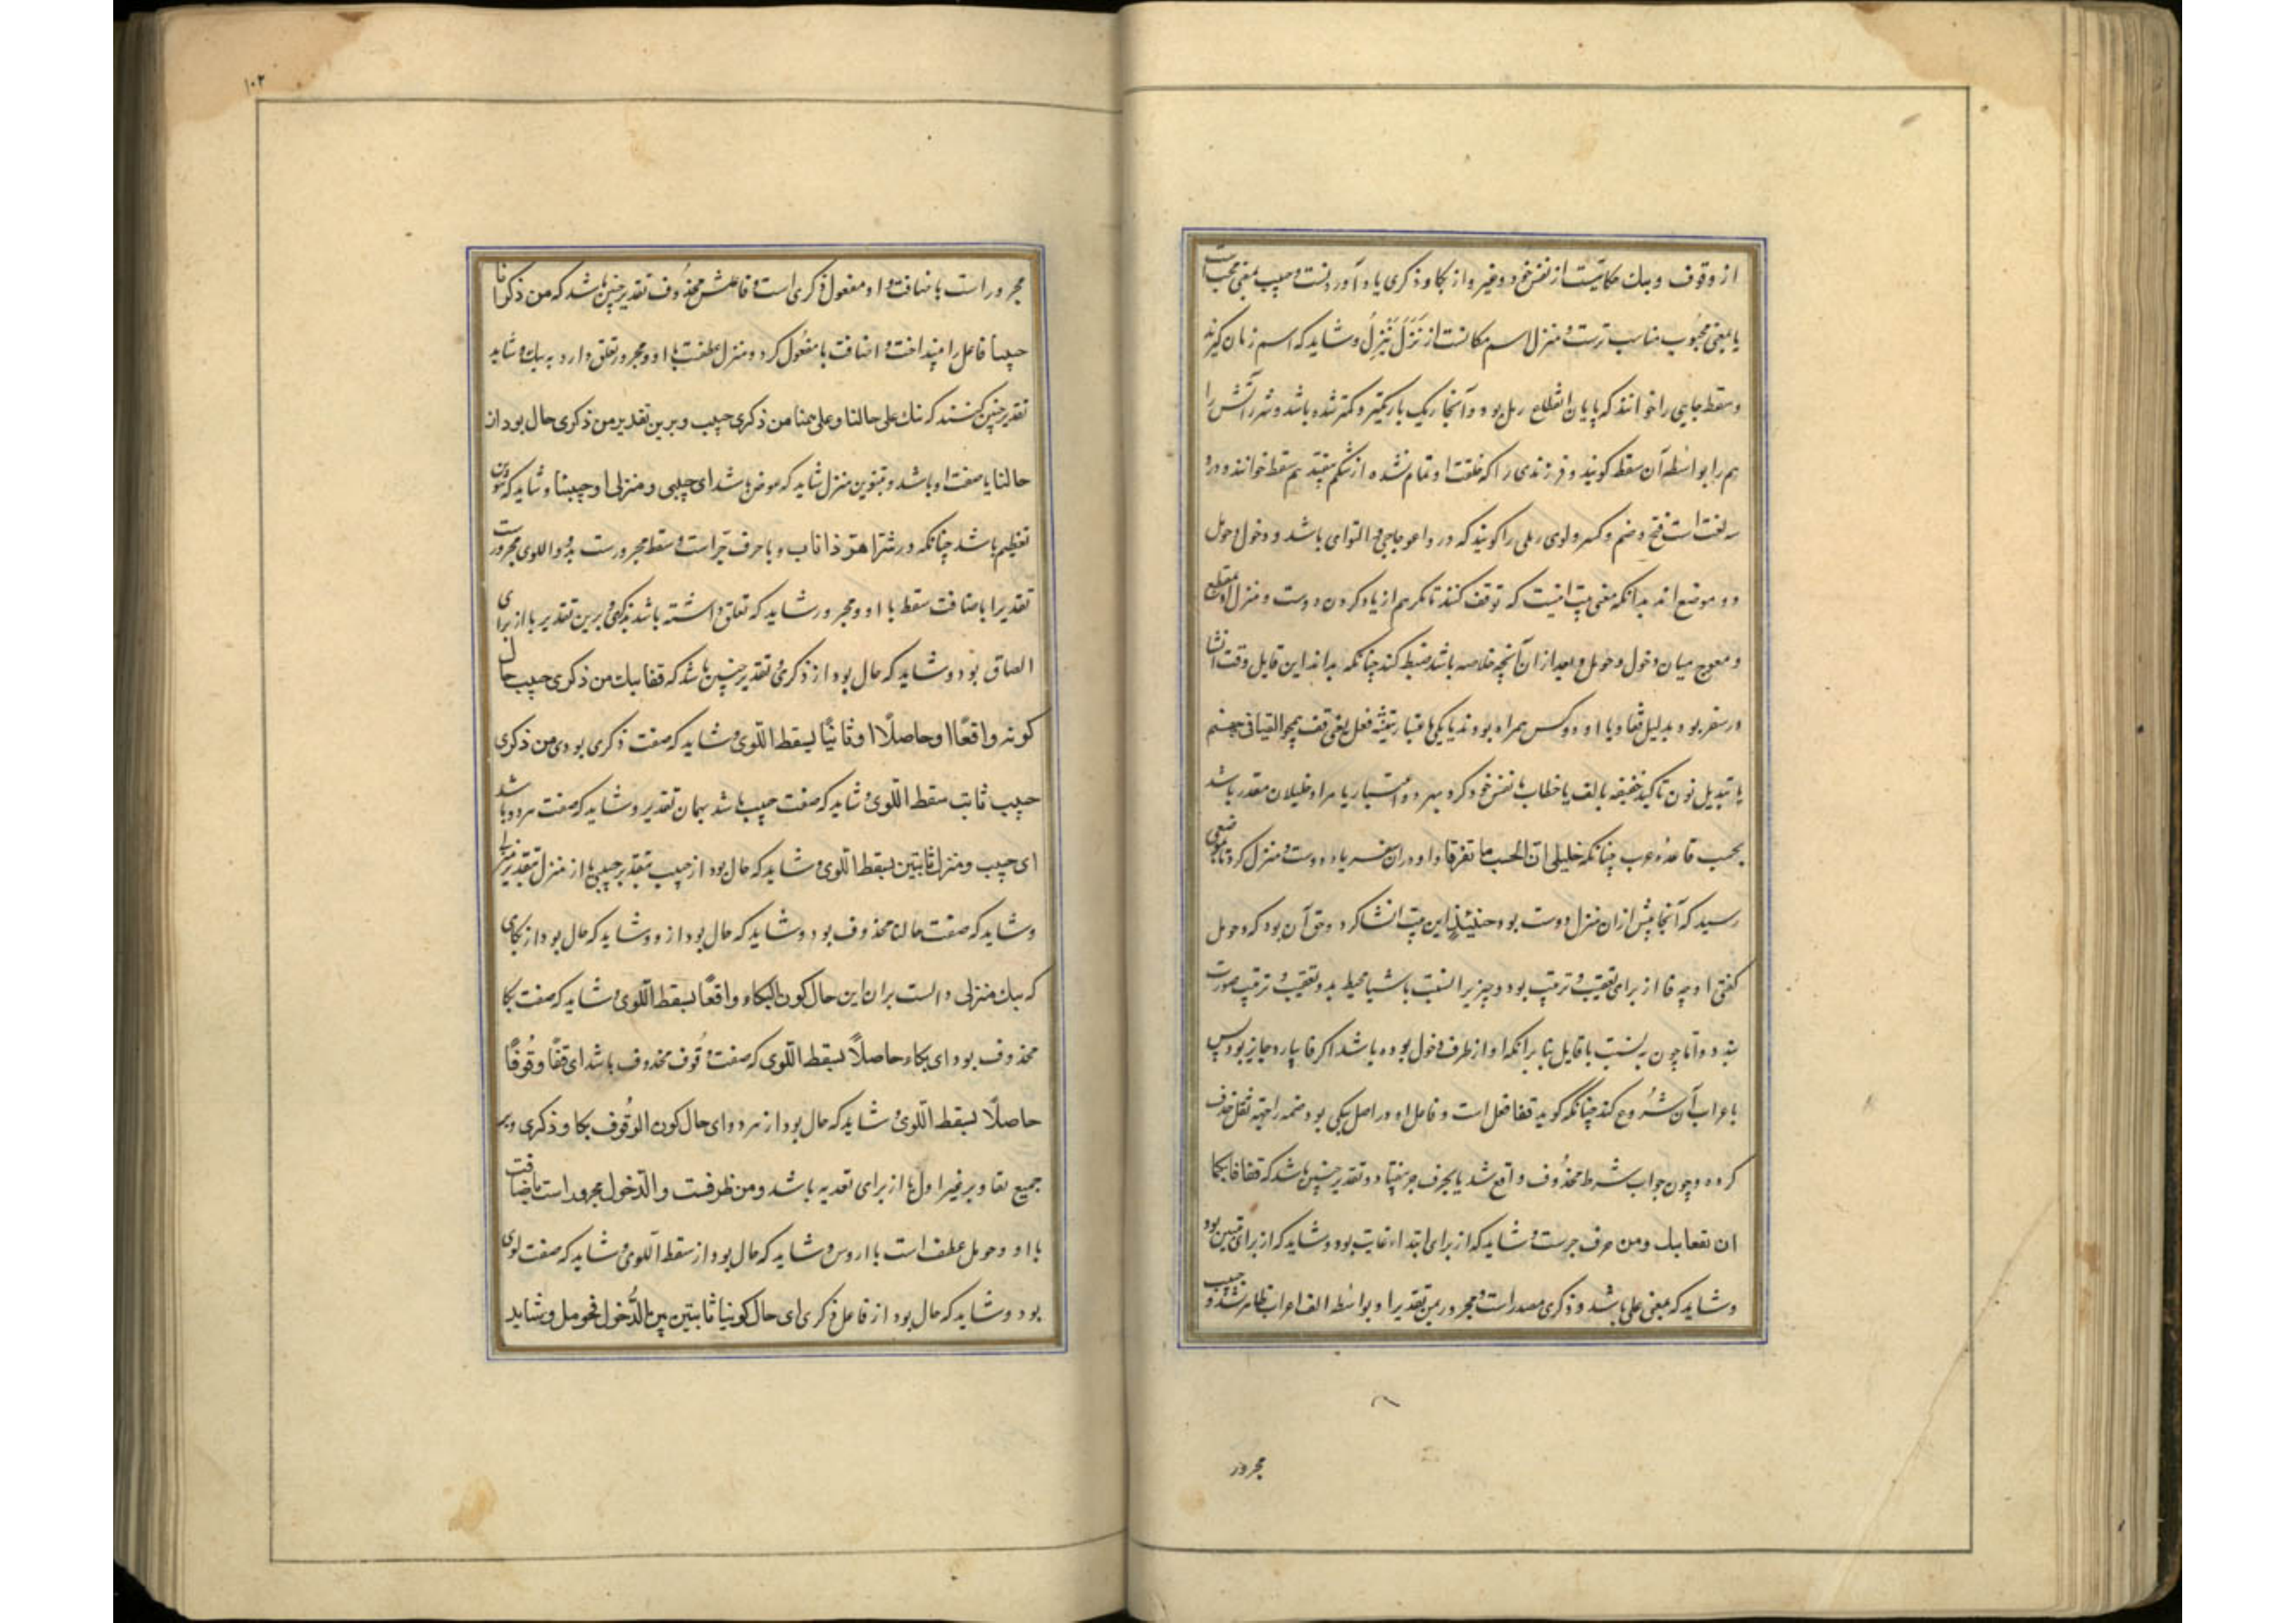 از وقوف و نبك حکایتست از نفس خود و غیر و از بکا و ذکری یاد آوردنست و حبیب بمعنی محب است
یا بمعنی محبوب مناسب ترست و منزل اسم مکانست از نَزَلَ یَنْزِلُ و شاید که اسم زمان گیرند
و سقط جایی را خوانند که پایان انقطاع رمل بود و آنجا ریک باریکتر و کمتر شده باشد و شرر آتش را
هم را بواسطه آن سقط کویند و فرزندی را که خلقت او تمام نشده از شکم بیفتد هم سقط خوانند و درو
سه لغت است فتح و ضم و کسر و لوی رملی را کویند که در و اعوجاجی و التوای باشد و دخول و حومل
دو موضع اند بدانکه معنی بیت اینست که توقف کنند تا بکریم از یاد کردن دوست و منزل او بمنقطع
و معوج میان دخول و حومل و بعد از ان آنچه خلاصه باشد ضبط کند چنانکه بداند این قایل وقت انشا
در سفر بود بدلیل قفا و با او دو کس همراه بودند یا یکی باعتبار تثنیه فعل یعنی قف قف همچو القیا فی جهنم
یا تبدیل نون تاکید خفیفه بالف یا خطاب با نفس خود کرد بهر دو اعتبار یا مراد خلیلان مقدر باشد
بحسب قاعدهٔ عرب چنانکه خلیلی ان الحب ما تفرقا و او در ان سفر یاد دوست و منزل کرد تا بموضعی
رسید که آنجا پیش از ان منزل دوست بود حینئذٍ این بیت انشا کرد و حق آن بود که و حومل
کفتی او چه فا از برای تعقیب و ترتیب بود و چیزیرا نسبت باشیا محیط بدو تعقیب و ترتیب صورت
نبندد و اما چون بنسبت با قایل بنا برانکه او از طرف دخول بوده باشد اکر فا بیارد جایز بود پس
باعراب آن شروع کند چنانکه کوید قفا فعل است و فاعل او در اصل یکی بود ضمه را جهة ثقل حذف
کرده و چون جواب شرط محذوف واقع شد یا بحرف جر بیفتاد و تقدیر چنین باشد که قفا فابکما
ان تقفا نبك و من حرف جرست و شاید که از برای ابتداء غایت بود و شاید که از برای تبیین بود
و شاید که بمعنی علی باشد و ذکری مصدر است و مجرور بمن تقدیرا و بواسطه الف اعراب ظاهر نشد و حبیب
مجرور
۱۰۲
مجرور است باضافت و او مفعول ذکری است و فاعلش محذوف تقدیر چنین باشد که من ذکرانا
حبیبنا فاعل را بینداخت و اضافت با مفعول کرد و منزل عطفست با او و مجرور تعلق دارد به نبك و شاید
تقدیر چنین کنند که نبك علی حالنا و علی حبنا من ذکری حبیب و برین تقدیر من ذکری حال بود از
حالنا یا صفت او باشد و تنوین منزل شاید که عوض باشد ای حبیبی و منزلی او حبیبنا و شاید که تنوین
تعظیم باشد چنانکه در شرّ اهرّ ذا ناب و با حرف جر است و سقط مجرورست بدو و اللوی مجرورست
تقدیرا باضافت سقط با او و مجرور شاید که تعلق داشته باشد بذکری و برین تقدیر با از برای
الصاق بود و شاید که حال بود از ذکری و تقدیر چنین باشد که قفا نبك من ذکری حبیب حال
کونه واقعًا او حاصلًا او ثابتًا بسقط اللوی و شاید که صفت ذکری بود ای من ذکری
حبیب ثابت بسقط اللوی و شاید که صفت حبیب باشد بهمان تقدیر و شاید که صفت هر دو باشد
ای حبیب و منزل ثابتین بسقط اللوی و شاید که حال بود از حبیب بتقدیر حبیبی یا از منزل بتقدیر منزلی
و شاید که صفت حالنا محذوف بود و شاید که حال بود از و و شاید که حال بود از بکای
که نبك منزلی دالست بران این حال کون البکاء واقعًا بسقط اللوی و شاید که صفت بکا
محذوف بود ای بکاء حاصلًا بسقط اللوی که صفت وقوف محذوف باشد ای قفا وقوفًا
حاصلًا بسقط اللوی و شاید که حال بود از هر دو ای حال کون الوقوف بکا و ذکری و بر
جمیع تقادیر غیر اول با از برای تعدیه باشد و من ظرفست و الدخول مجرور است باضافت
با او و حومل عطف است با او پس و شاید که حال بود از سقط اللوی و شاید که صفت لوی
بود و شاید که حال بود از فاعل ذکری ای حال کوننا ثابتین بین الدخول فحومل و شاید